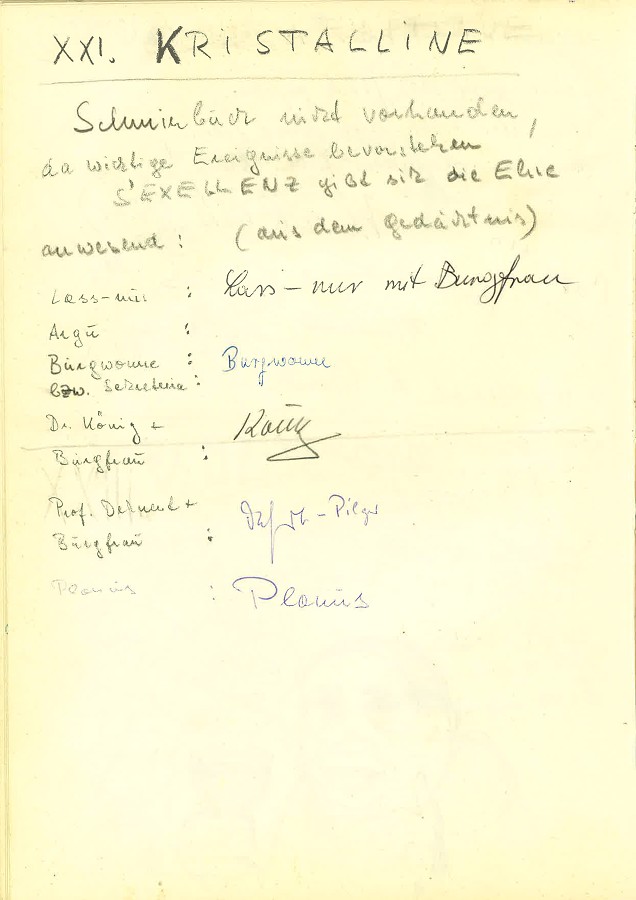 XXI. KRISTALLINE
Schmierbuch nicht vorhanden,
da wichtige Ereignisse bevorstehen
S'EXELLENZ gibt sich die Ehre
anwesend : (aus dem gedächtnis)
Lass-nur : Lass-nur mit Burgfrau
Argu :
Burgwonne : Burgwonne
bzw. Sekreteria :
Dr. König + König
Burgfrau :
Prof. +
Burgfrau : - Pilger
Plonius : Plonius